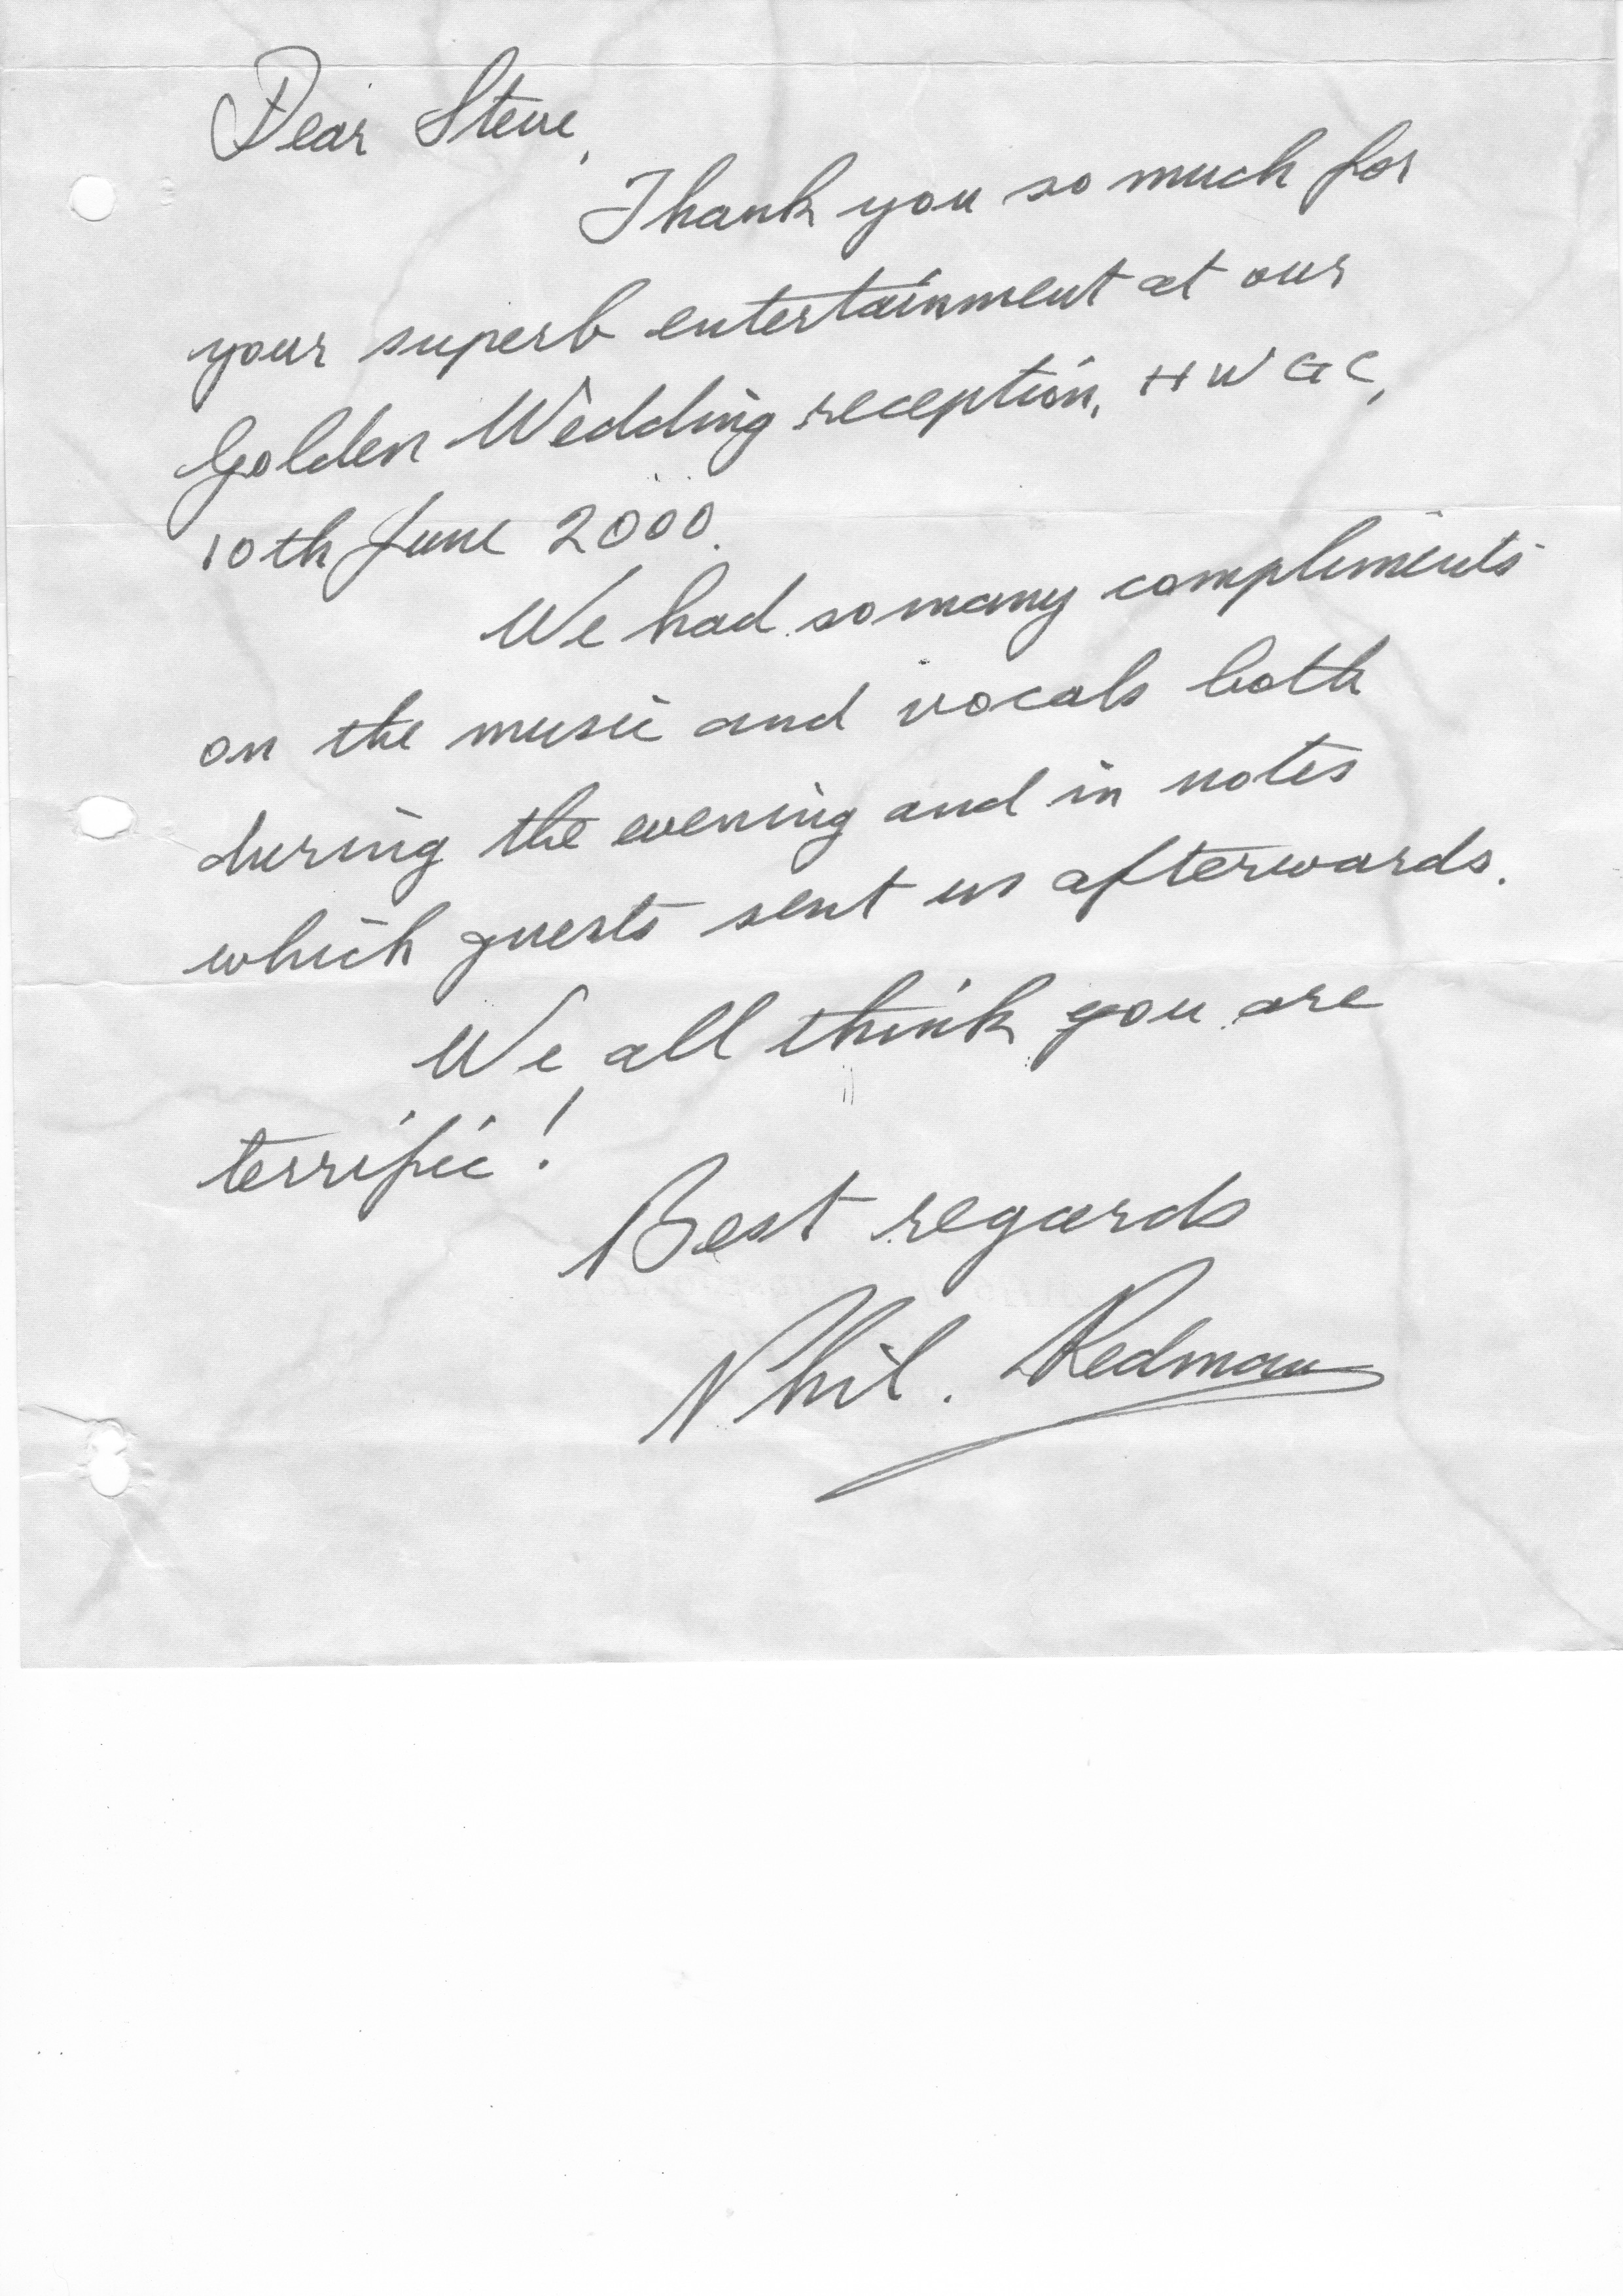 Dear Steve,
Thank you so much for
your superb entertainment at our
Golden Wedding reception, HWGC,
10th June 2000.
We had so many compliments
on the music and vocals both
during the evening and in notes
which guests sent us afterwards.
We all think you are
terrific!
Best regards
Phil. Redman